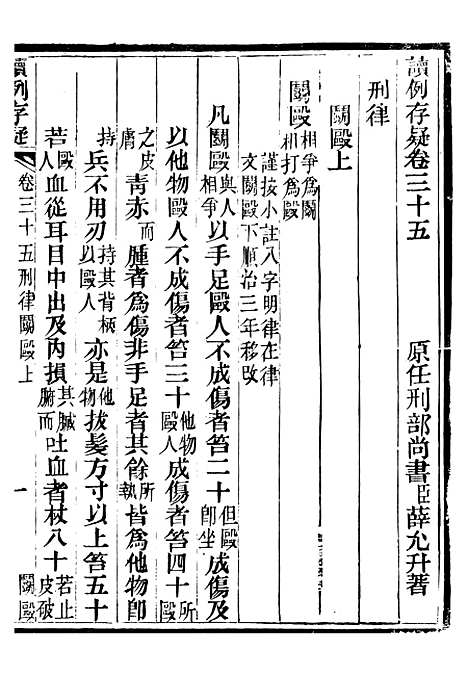 讀例存疑卷三十五　原任刑部尚書臣薛允升著
刑律
鬭毆上
鬭毆相爭為鬭相打為毆
謹按小註八字明律在律
文鬭毆下順治三年移改
凡鬭毆與人相爭以手足毆人不成傷者笞二十但毆即坐成傷及
以他物毆人不成傷者笞三十他物毆人成傷者笞四十所毆
之皮膚青赤而腫者為傷非手足者其餘所執皆為他物即
持兵不用刃持其背柄以毆人亦是他物拔髮方寸以上笞五十
若毆人血從耳目中出及內損其臟腑而吐血者杖八十若止皮破
讀例存疑　卷三十五刑律鬭毆上　一　鬭毆